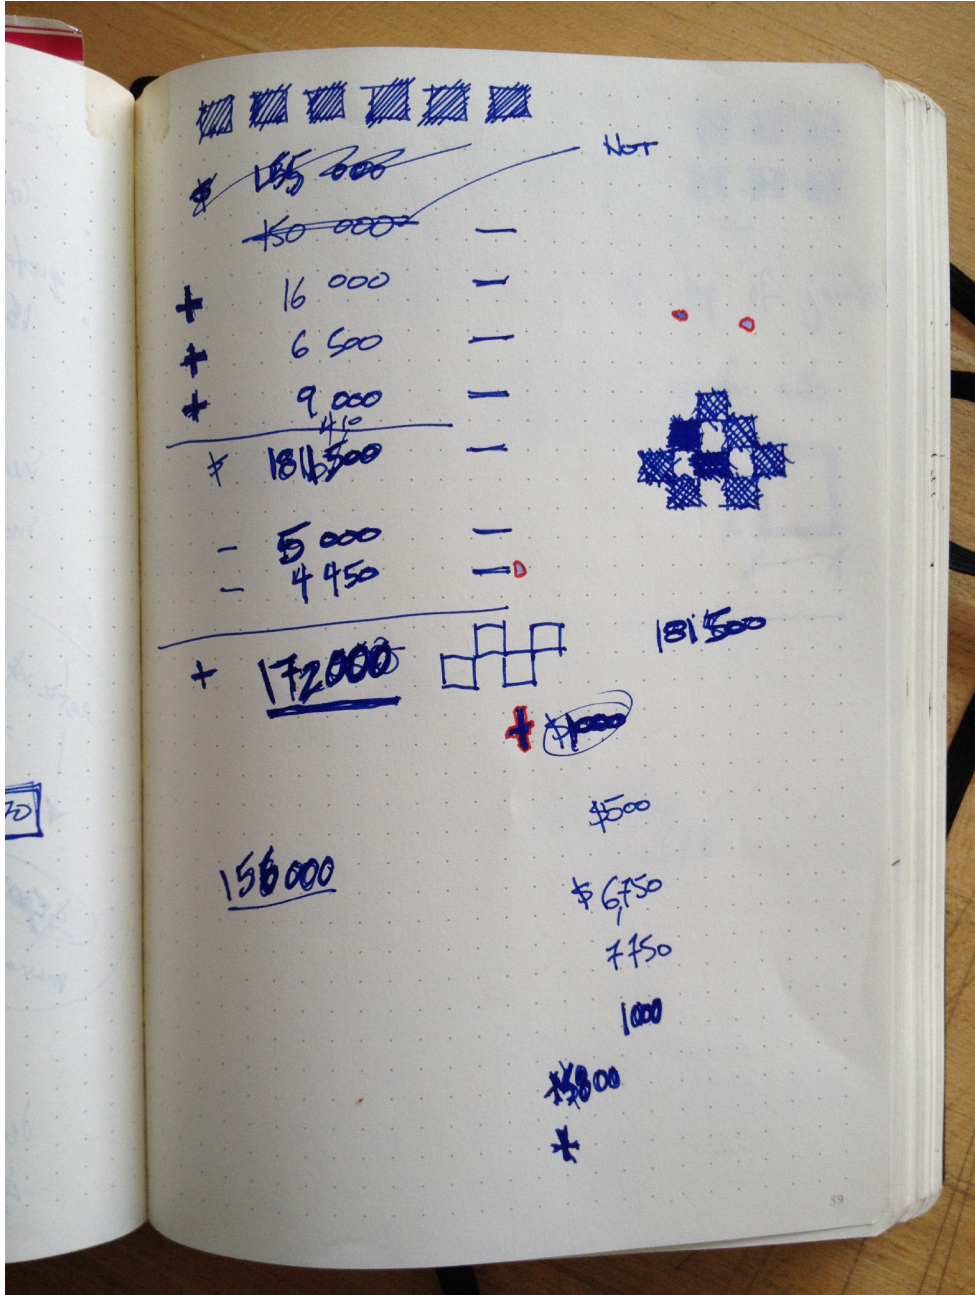 NOT
155 000
150 000 —
+ 16 000 —
+ 6 500 —
+ 9 000 —
181 500 —
- 5 000 —
- 4 450 —
+ 172000
181 500
+ $1000
$500
156 000
$ 6,750
7750
1000
+
59